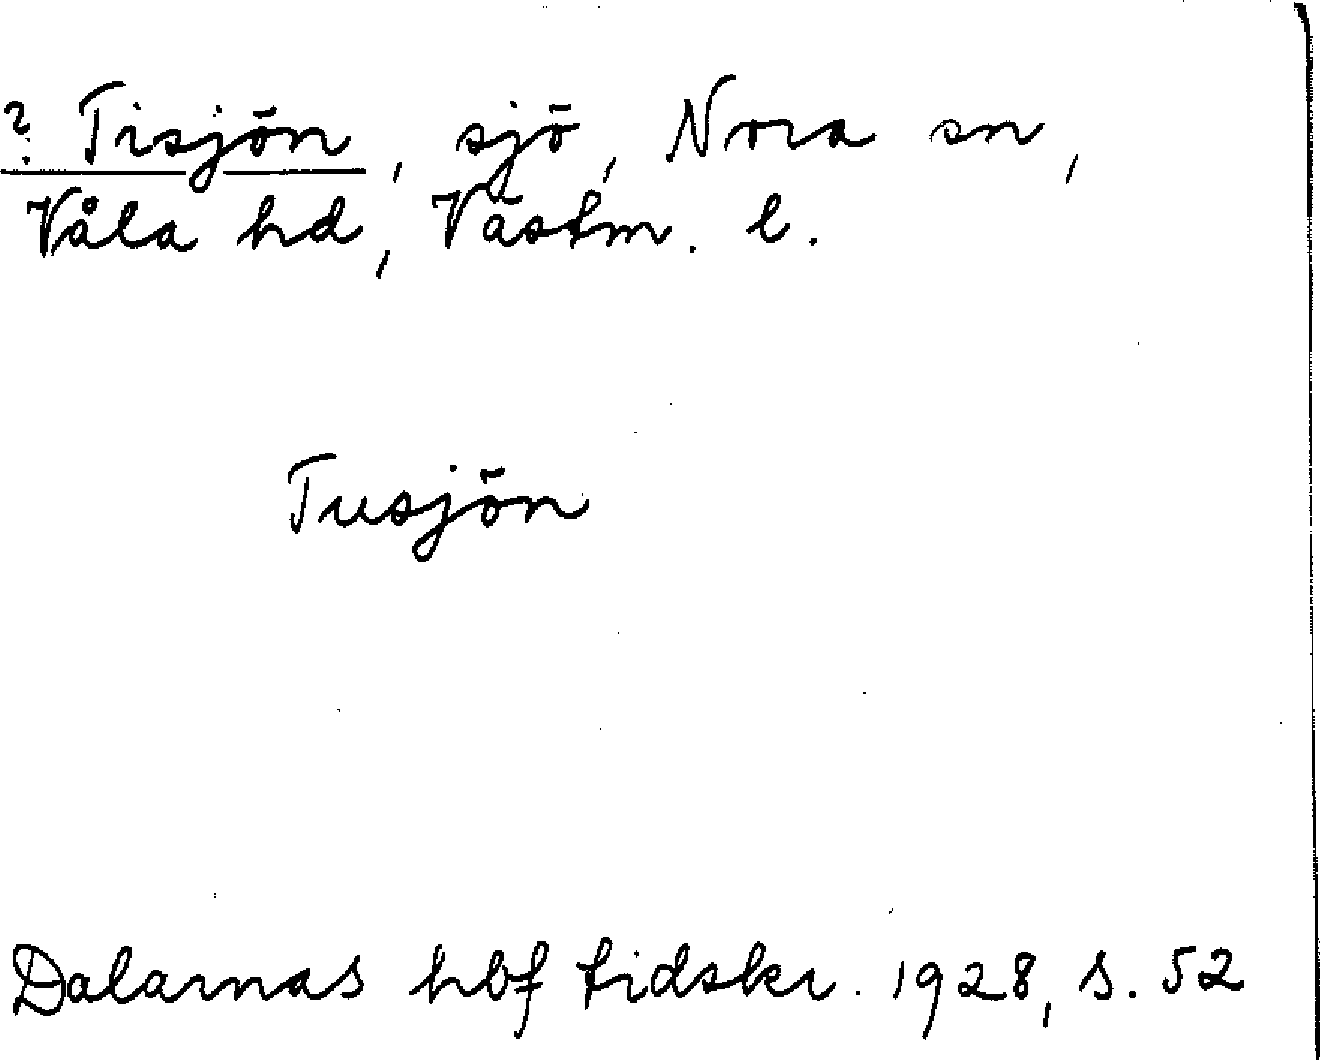 ? Tisjön, sjö, Nora sn,
Våla hd, Västm. l.
Tusjön
Dalarnas hbf tidskr. 1928, s. 52